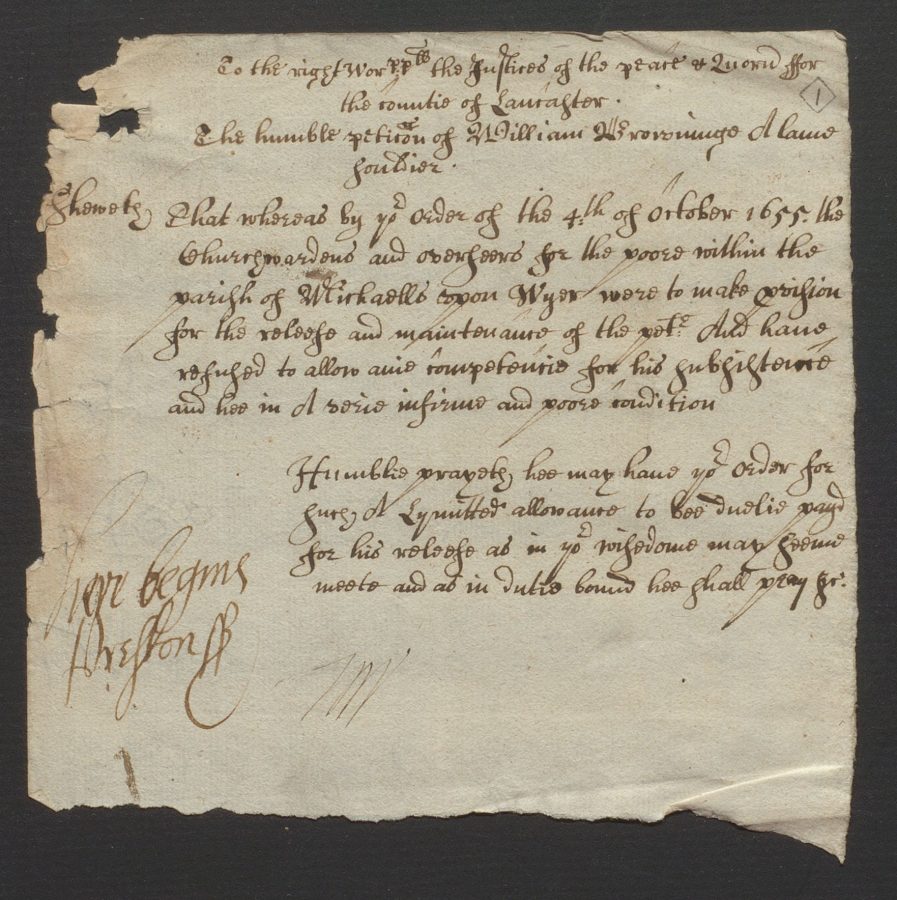 To the right Worpp^lls the Justices of the peace & Quorū ffor
the countie of Lancaster.
1
The humble peticōn of William Browninge A lame
souldier.
Sheweth That whereas by yo^r Order of the 4th of October 1655. the
Churchwardens and overseers for the poore within the
parish of Michaells upon Wyer were to make pvision
for the releefe and maintenance of the pet^r. And have
refused to allow anie competencie for his subsistence
and hee in A verie infirme and poore condition
Humblie prayeth hee may have yo^r Order for
such A Lymitted allowance to bee duelie payd
for his releefe as in yo^r wisedome may seeme
meete and as in dutie bound hee shall pray &c.
here begins
Preston SS